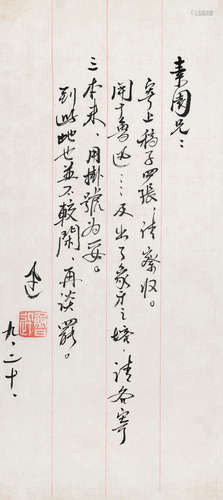 素園兄：
寄上稿子四張，請察收。
關于魯迅……及出了象牙之塔，請各寄
三本來，用掛號為妥。
到此地也並不較閑，再談罷。
迅
九、二十、